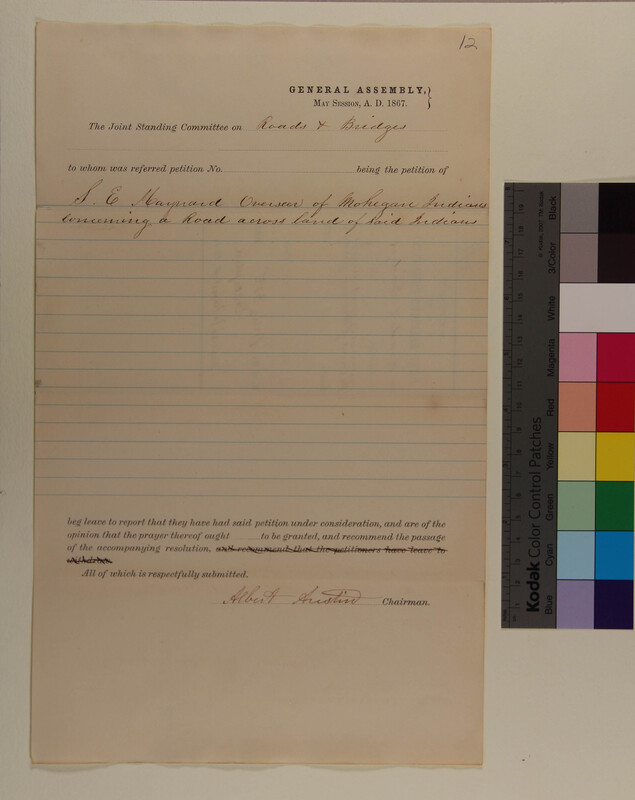 12
GENERAL ASSEMBLY,
MAY SESSION, A. D. 1867.
The Joint Standing Committee on Roads & Bridges
to whom was referred petition No. being the petition of
S. E. Maynard Overseer of Mohegan Indians
Concerning a Road across land of said Indians
beg leave to report that they have had said petition under consideration, and are of the
opinion that the prayer thereof ought to be granted, and recommend the passage
of the accompanying resolution, and recommend that the petitioners have leave to
withdraw.
All of which is respectfully submitted.
Albert Austin Chairman.
Kodak Color Control Patches
© Kodak, 2007 TM: Kodak
Blue Cyan Green Yellow Red Magenta White 3/Color Black